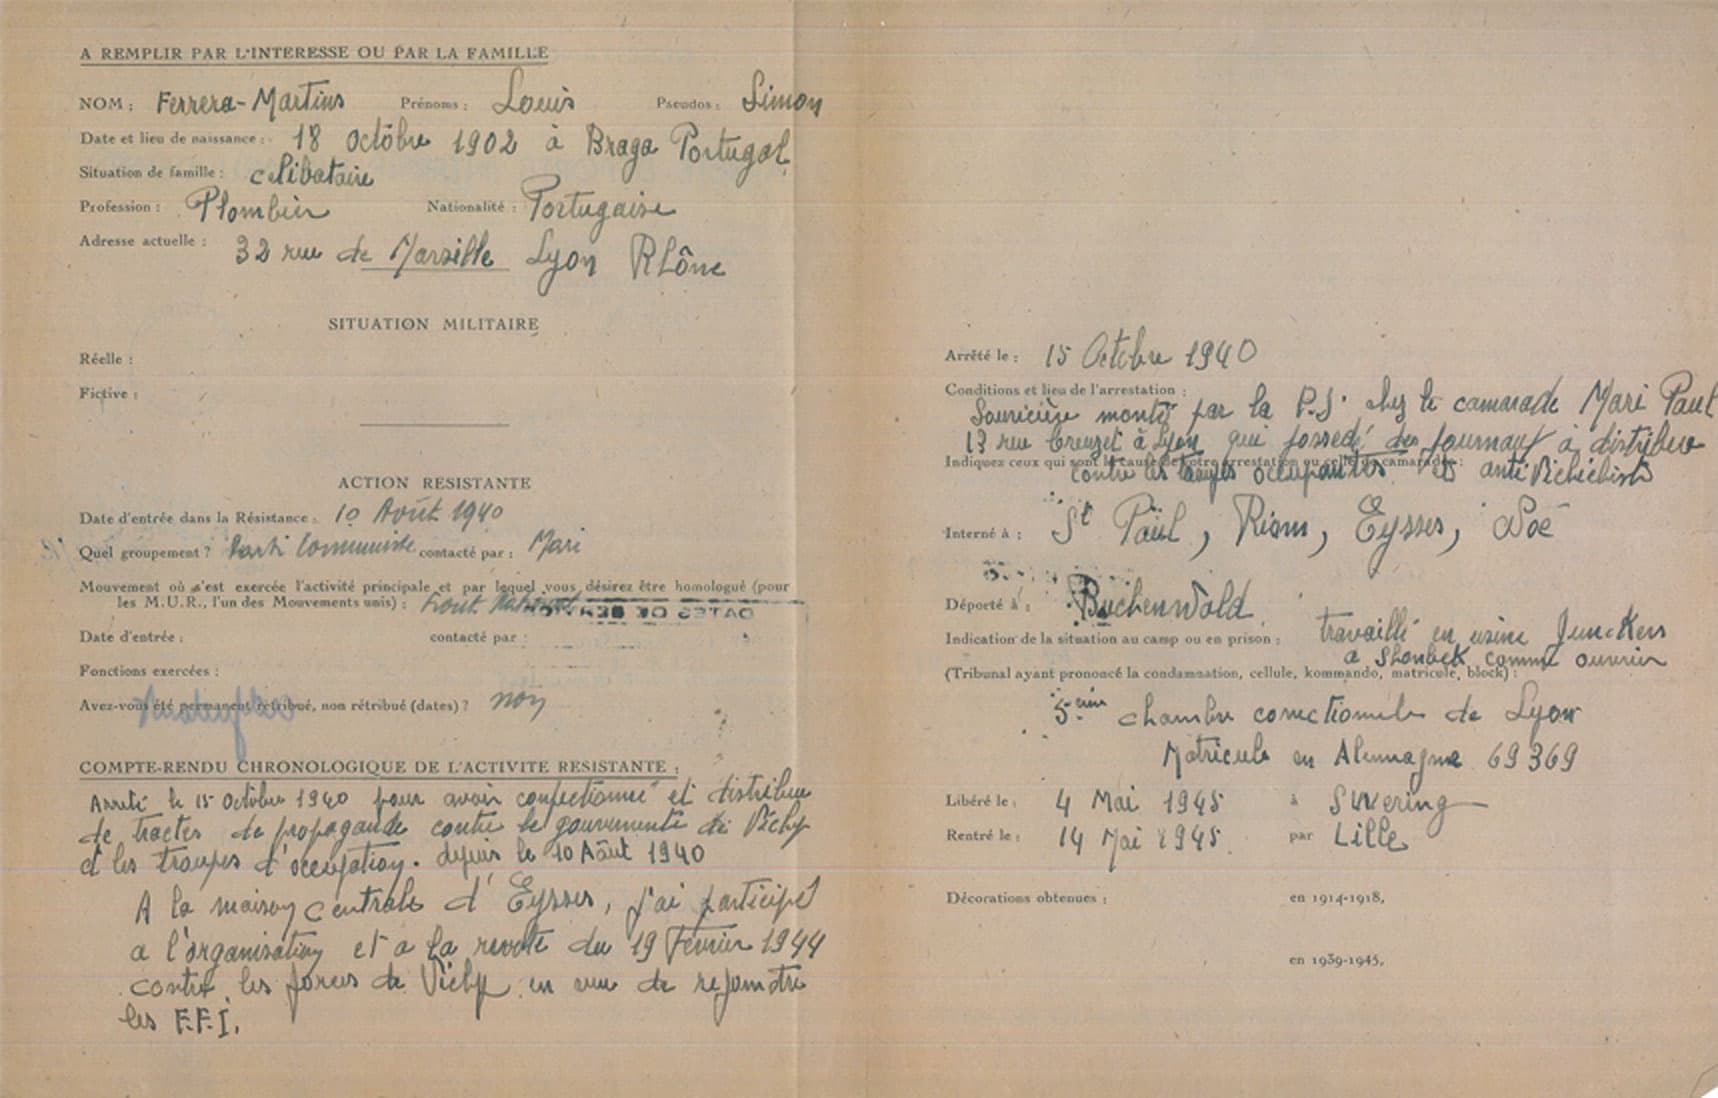 A REMPLIR PAR L'INTERESSE OU PAR LA FAMILLE
NOM : Ferrera-Martins Prénoms : Louis Pseudos : Simon
Date et lieu de naissance : 18 Octôbre 1902 à Braga Portugal
Situation de famille : celibataire
Profession : Plombier Nationalité : Portugaise
Adresse actuelle : 32 rue de Marseille Lyon Rhône
SITUATION MILITAIRE
Réelle :
Fictive :
ACTION RESISTANTE
Date d'entrée dans la Résistance : 10 Août 1940
Quel groupement ? Parti Communiste contacté par : Mari
Mouvement où s'est exercée l'activité principale et par lequel vous désirez être homologué (pour
les M.U.R., l'un des Mouvements unis) : Front National
DATES DE
Date d'entrée : contacté par :
Fonctions exercées :
Avez-vous été permanent retribué, non rétribué (dates) ? non
COMPTE-RENDU CHRONOLOGIQUE DE L'ACTIVITE RESISTANTE :
Arreté le 15 Octobre 1940 pour avoir confectionné et distribue
de tractes de propagande contre le gouvernente de Vichy
et les troupes d'occupation. depuis le 10 Aâut 1940
A la maison centrale d'Eysses, j'ai participé
a l'organisation et a la revolte du 19 Février 1944
contre les forces de Vichy en vue de rejomdre
les F.F.I.
Arrêté le : 15 Octobre 1940
Conditions et lieu de l'arrestation :
Souricière monté par la P.J. chez le camarade Mari Paul
13 rue Creuzet à Lyon qui possedé des journaux à distribue
Indiquez ceux qui sont la cause de votre arrestation ou celle de camarades :
contre les troupes occupantes et anti Vichichiste
Interné à : St Paul, Riom, Eysses, Noé
Déporté à : Buchenwald
Indication de la situation au camp ou en prison : travaillé en usine Junckers
a Shonbek comme ouvrier
(Tribunal ayant prononcé la condamnation, cellule, kommando, matricule, block) :
5eme chambre corectionnele de Lyon
Matricule en Alemagne 69369
Libéré le : 4 Mai 1945 à SWering
Rentré le : 14 Mai 1945 par Lille
Décorations obtenues : en 1914-1918,
en 1939-1945,